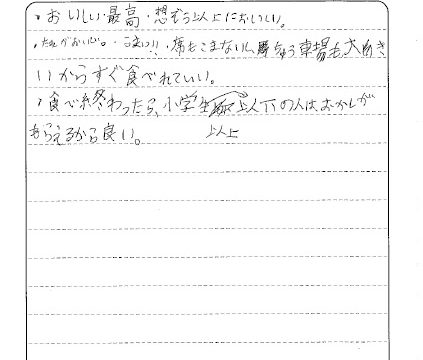 ・おいしい・最高・想ぞう以上においしい。
・たれがおい心。・うまい!!・席もこまないし、駐ちゅう車場も大き
いからすぐ食べれていい。
・食べ終わったら、小学生以下の人はおかしが
以上
もらえるから良い。